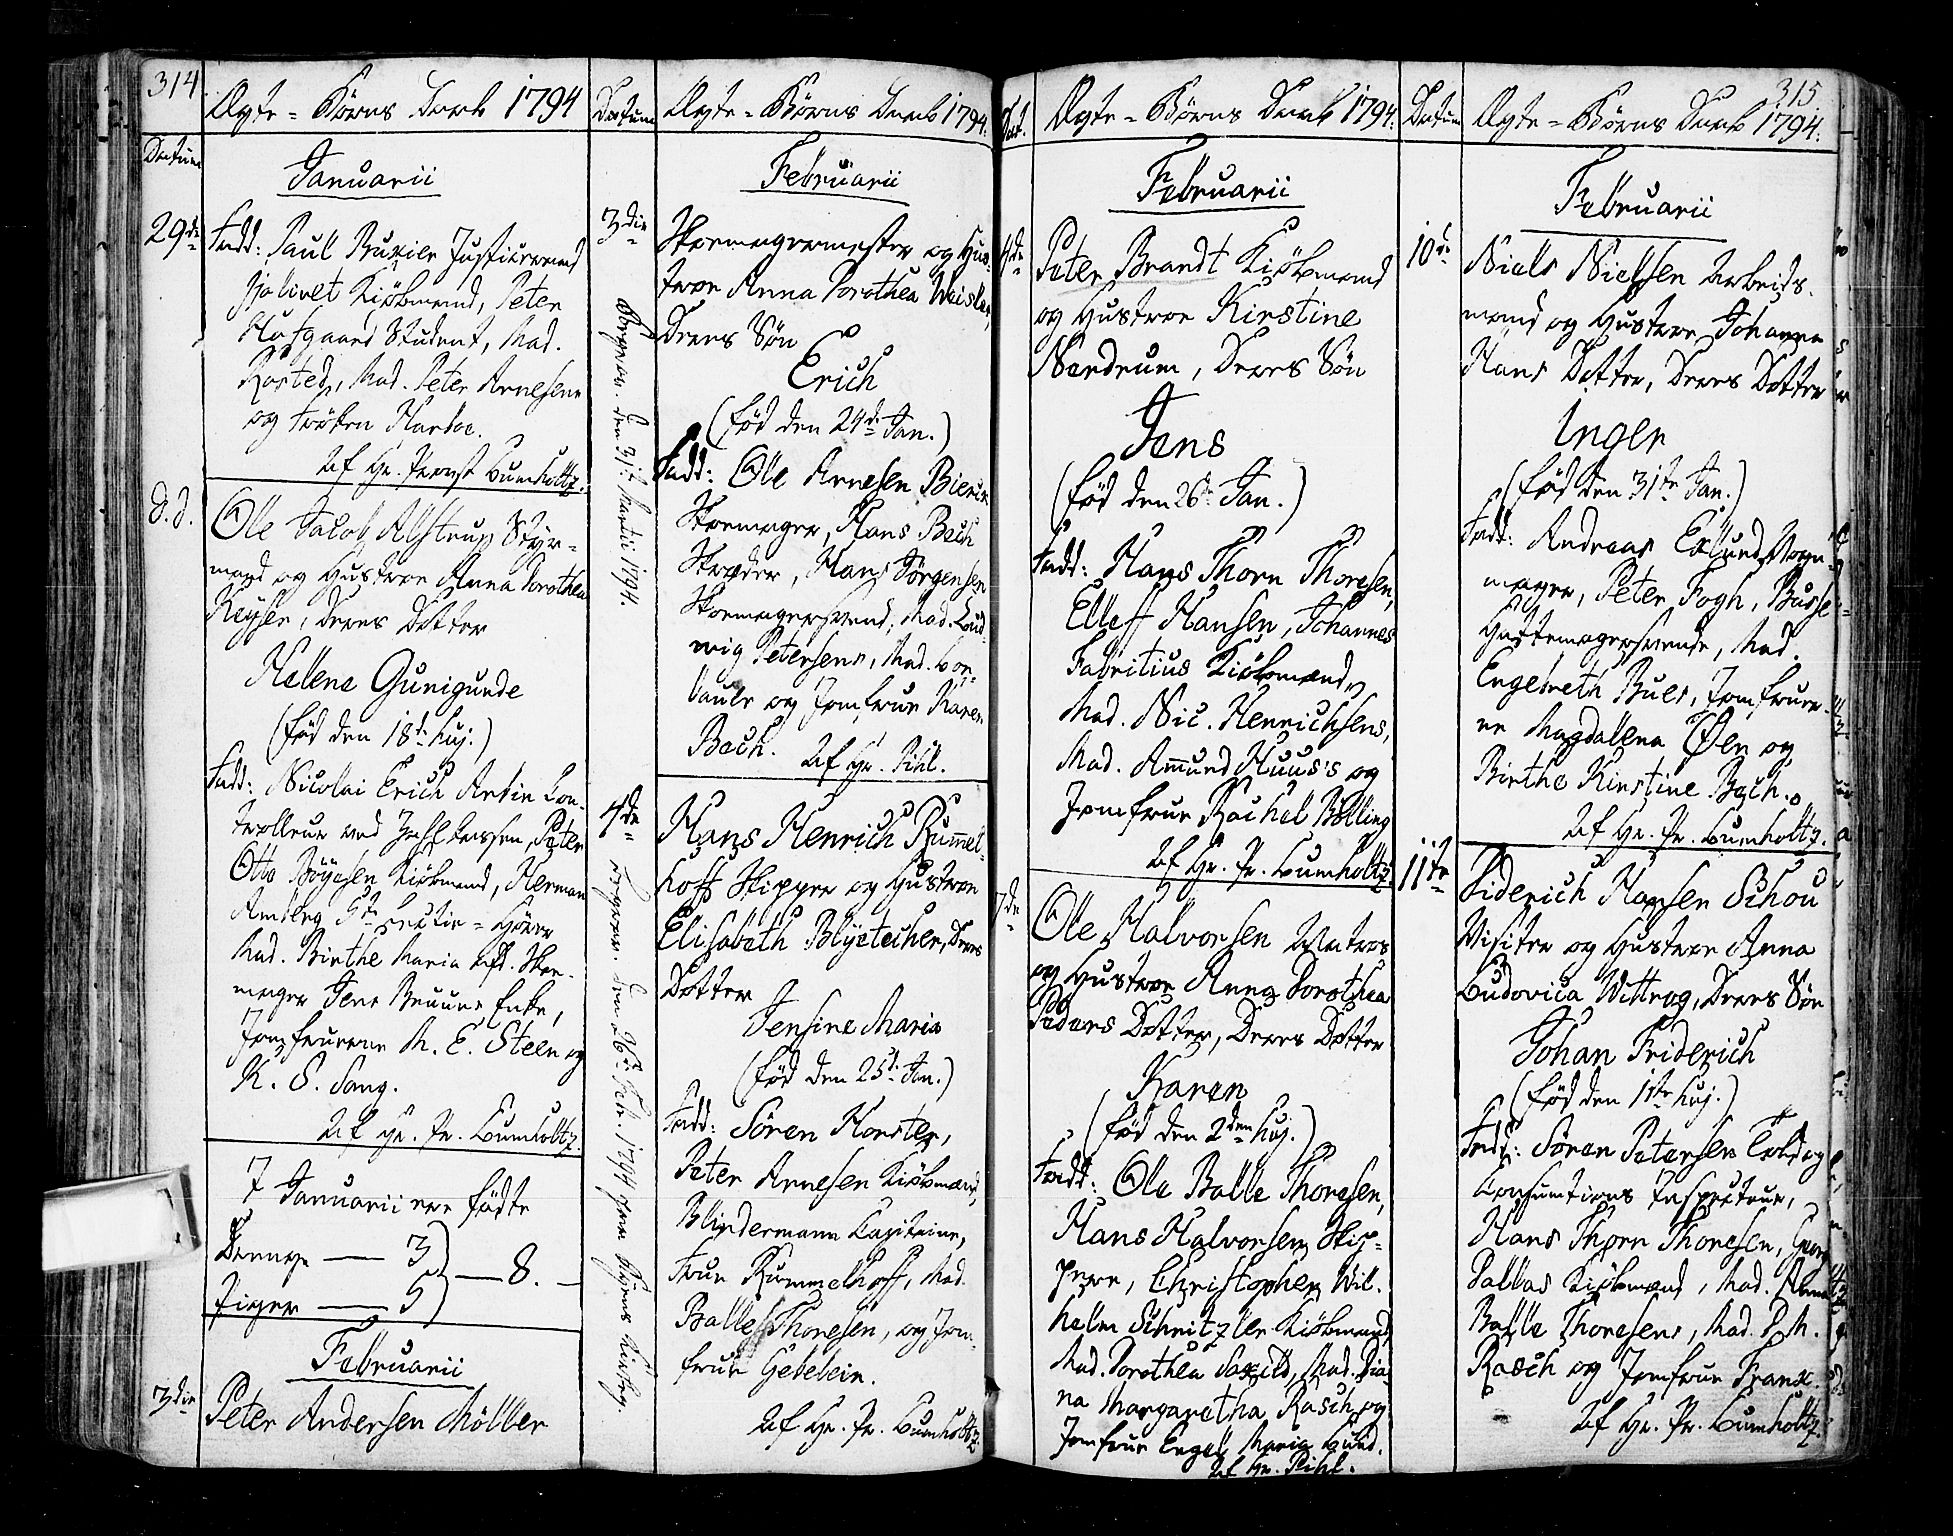 314
Ægte=Börns Daab 1794
Datum
Januarii
29de
Fadd: Paul
Kiöbmand, Peter
Hofgaard Student, Mad.
Rosted, Mad. Peter Arnesens
og Fröken Harboe.
Af Hr. Provst Lumholtz.
d.d.
Ole Jacob Alstrup Styr=
mand og Hustroe Anna Dorothea
Keyser, Deres Dotter
Helene Gunigunde
(föd den 18de huj.)
Fadd: Nicolai Erich Arbin Con-
trolleur ved Peter
Otto Böyesen Kiöbmand, Herman
Amberg 5te Lectie=Hörer
Mad. Birthe Maria Afd. Skoe-
mager Jens Bruuns Enke,
Jomfruerne M. E. Steen og
K. S. Sang.
Af Hr. Pr. Lumholtz.
I Januarii ere födte
Drenge — 3
— 8. —
Piger — 5
Februarii
3die
Peter Andersen Möller
Datum
Ægte=Börns Daab 1794.
Februarii
3die
Skoemagermester og Hus-
troe Anna Dorothea Weisler,
Deres Sön
Erich
(föd den 24de Jan.)
Fadd: Ole Arnesen Bierck
Skoemager, Hans Bach
Skræder, Hans Jörgensen
Skoemagersvend, Mad. Lud-
wig Petersens, Mad.
og Jomfrue Karen
Bach.
Af Hr. Pihl.
den 31te Martii 1794.
4de
Hans Henrich Rummel-
hoff Skipper og Hustroe
Elisabeth Blyetecher, Deres
Dotter
Jensine Maria
(föd den 25de Jan.)
Fadd: Sören Horster,
Peter Arnesen Kiöbmænd,
Blindermann Capitaine,
Frue Rummelhoff, Mad.
Balle Thoresen, og Jom-
frue Gebelein.
Af Hr. Pr. Lumholtz
den 26de Febr. 1794
Dat.
Ægte=Börns Daab 1794.
Februarii
4de
Peter Brandt Kiöbmand
og Hustroe Kirstine
Nordrum, Deres Sön
Jens
(föd den 26de Jan.)
Fadd: Hans Thorn Thoresen,
Ellef Hansen, Johannes
Fabritius Kiöbmænd,
Mad. Nic. Henrichsens,
Mad. Amund Huus's og
Jomfrue Rachel Bolling
Af Hr. Pr. Lumholtz
7de
Ole Halvorsen Matros
og Hustroe Anna Dorothea
Peders Dotter, Deres Dotter
Karen
(föd den 2den huj.)
Fadd: Ole Balle Thoresen,
Hans Halvorsen Skip-
pere, Christopher Wil-
helm Schnitzler Kiöbmand,
Mad. Dorothea Saxild, Mad. Dia-
na Margaretha Rasch og
Jomfrue Engel Maria Lund.
Af Hr. Pihl.
315.
Datum
Ægte=Börns Daab 1794.
Februarii
10de
Niels Nielsen Arbeids-
mand og Hustroe Johanna
Hans Dotter, Deres Dotter
Inger
(föd den 31te Jan.)
Fadd: Andreas Eklund Vogn-
mager, Peter Fogh, Busse
Hattemagersvende, Mad.
Engebreth Bues, Jomfruer-
ne Magdalena Öen og
Birthe Kirstine Bach.
Af Hr. Pr. Lumholtz.
11te
Diderich Hansen Schou
Visiteur og Hustroe Anna
Ludovica Wittrog, Deres Sön
Johan Friderich
(föd den 1ste huj.)
Fadd: Sören Petersen Told og
Consumtions Inspecteur,
Hans Thorn Thoresen, Georg
Pallas Kiöbmænd, Mad. Anna
Balle Thoresens, Mad. P. M.
Rasch og Jomfrue Franx.
Af Hr. Pr. Lumholtz.